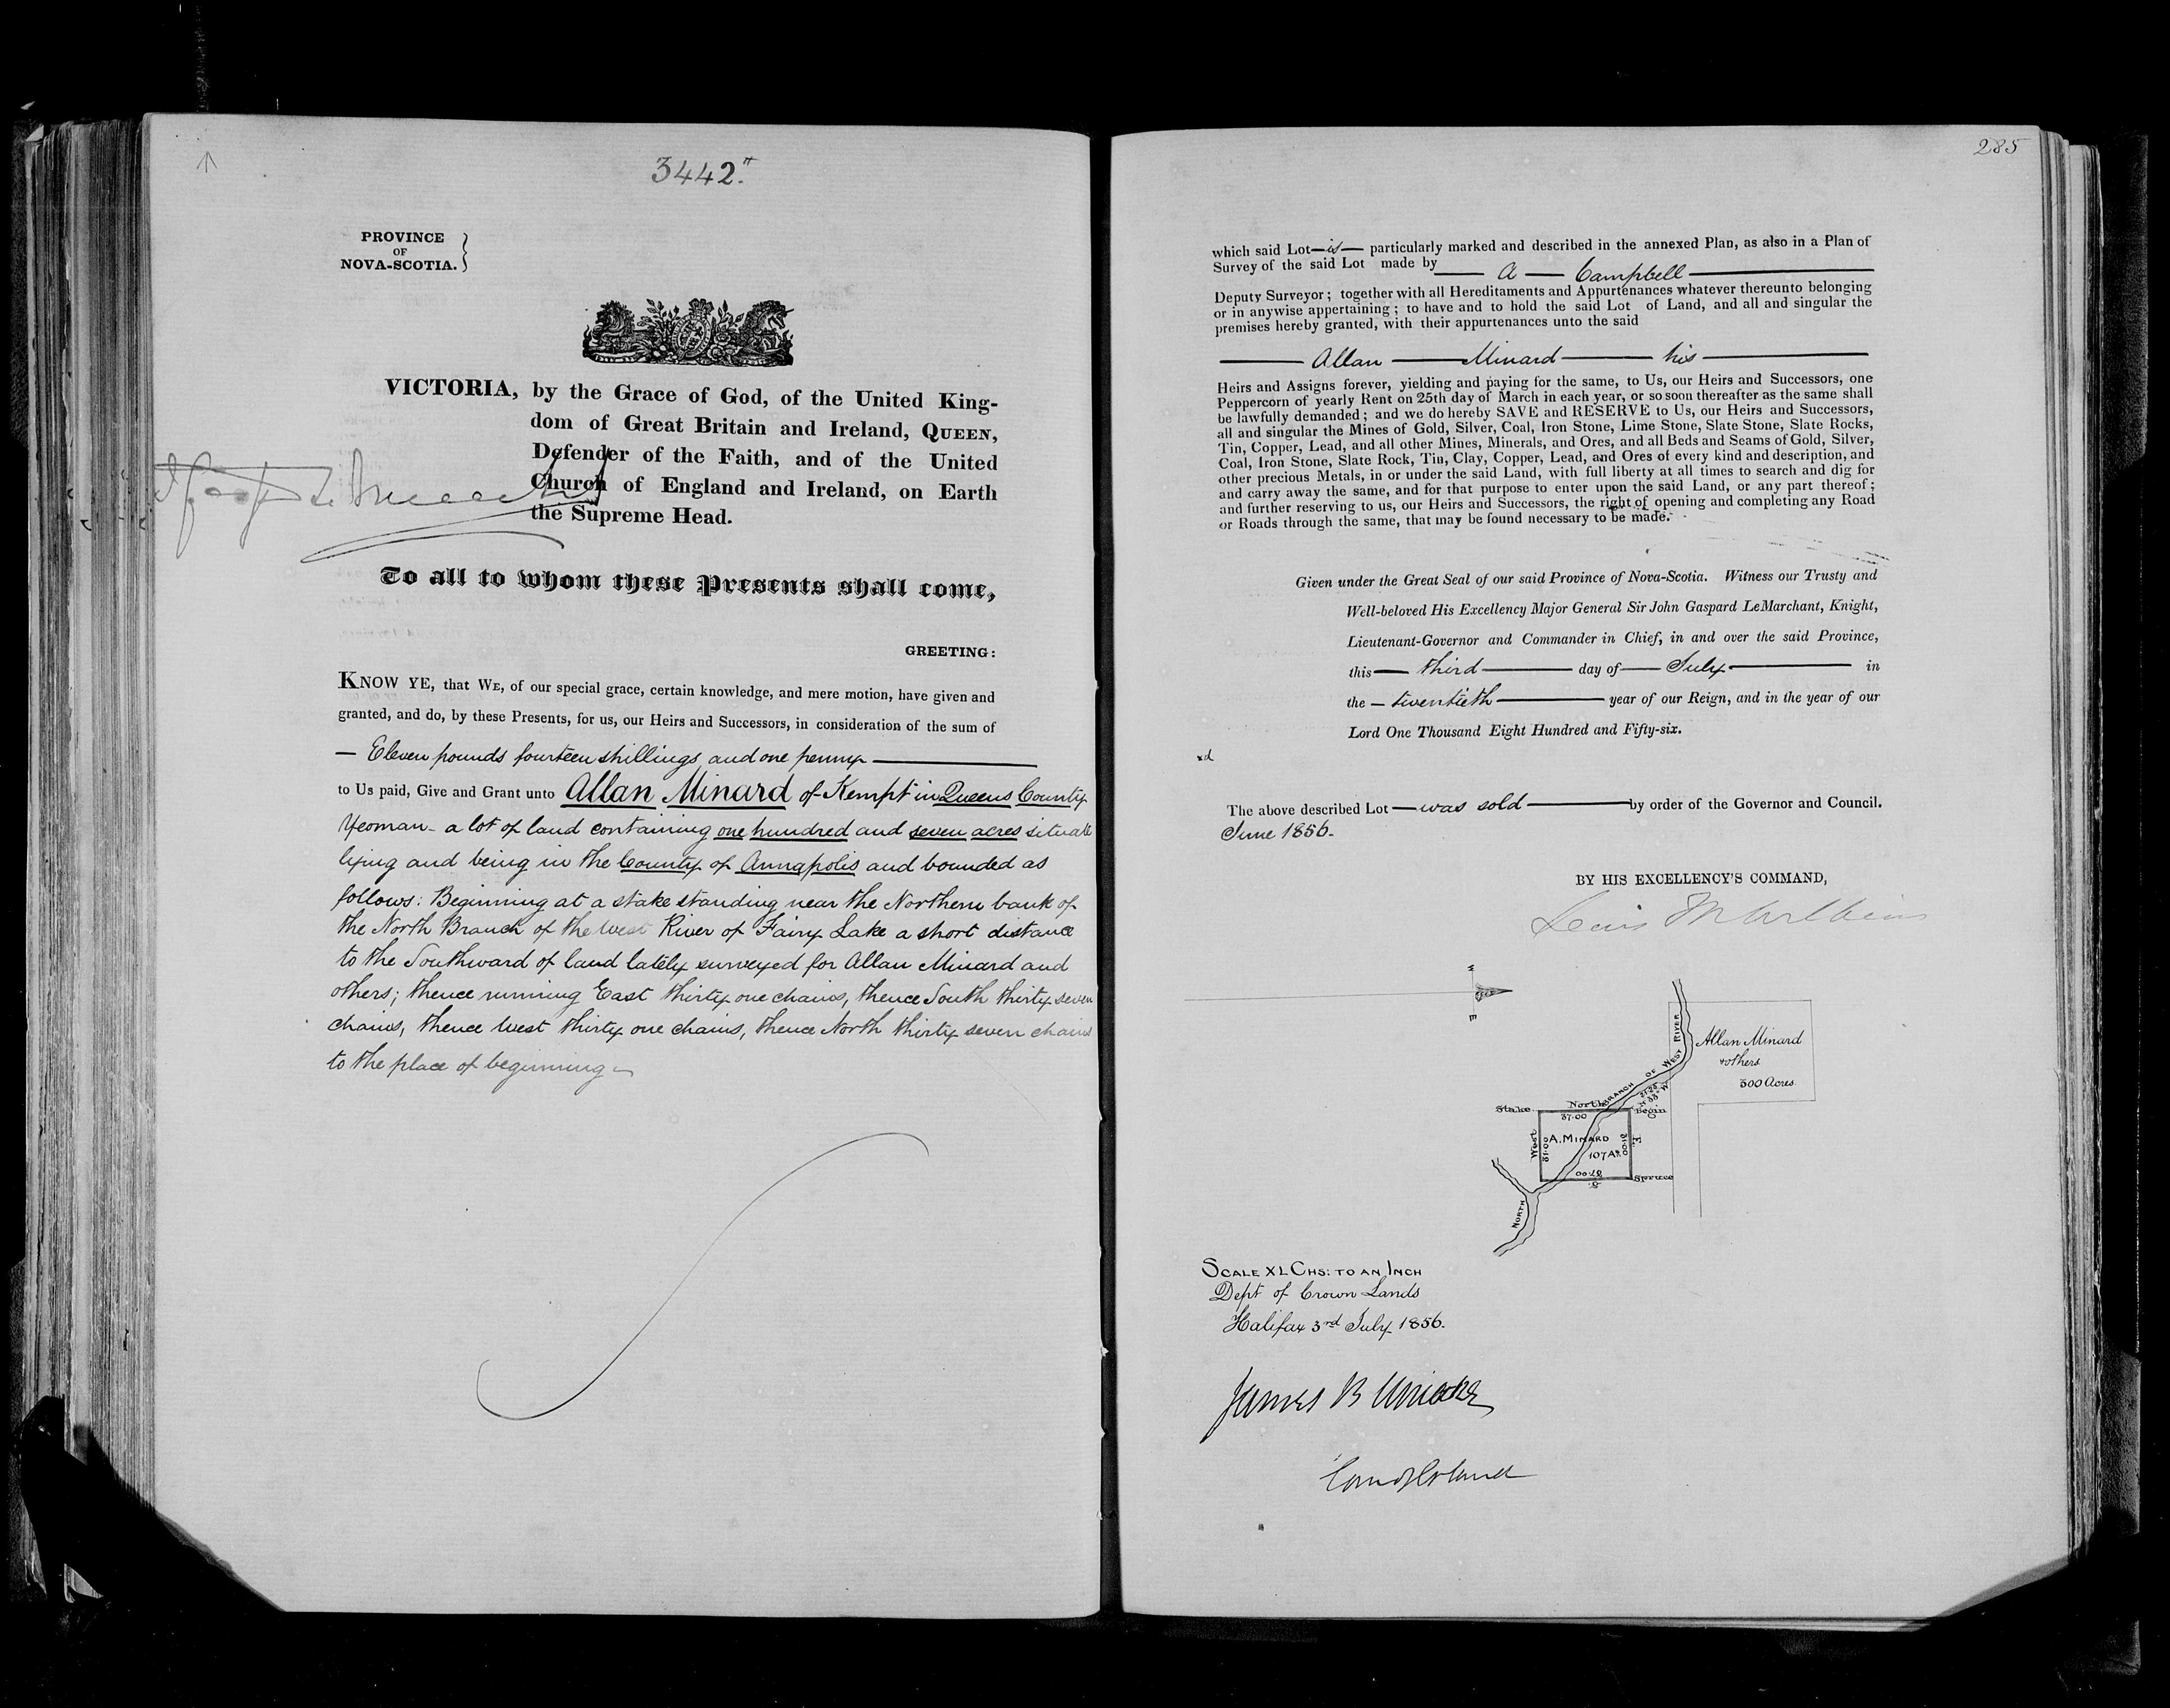 3442.
PROVINCE
OF
NOVA-SCOTIA.
VICTORIA, by the Grace of God, of the United King-
dom of Great Britain and Ireland, QUEEN,
Defender of the Faith, and of the United
Church of England and Ireland, on Earth
the Supreme Head.
To all to whom these Presents shall come,
GREETING:
KNOW YE, that WE, of our special grace, certain knowledge, and mere motion, have given and
granted, and do, by these Presents, for us, our Heirs and Successors, in consideration of the sum of
— Eleven pounds fourteen shillings and one penny —
to Us paid, Give and Grant unto Allan Minard of Kempt in Queens County
Yeoman - a lot of land containing one hundred and seven acres situate
lying and being in the County of Annapolis and bounded as
follows: Beginning at a stake standing near the Northern bank of
the North Branch of the West River of Fairy Lake a short distance
to the Southward of land lately surveyed for Allan Minard and
others; thence running East thirty one chains, thence South thirty seven
chains, thence West thirty one chains, thence North thirty seven chains
to the place of beginning
285
which said Lot — is — particularly marked and described in the annexed Plan, as also in a Plan of
Survey of the said Lot made by — A — Campbell —
Deputy Surveyor; together with all Hereditaments and Appurtenances whatever thereunto belonging
or in anywise appertaining; to have and to hold the said Lot of Land, and all and singular the
premises hereby granted, with their appurtenances unto the said
— Allan — Minard — his —
Heirs and Assigns forever, yielding and paying for the same, to Us, our Heirs and Successors, one
Peppercorn of yearly Rent on 25th day of March in each year, or so soon thereafter as the same shall
be lawfully demanded; and we do hereby SAVE and RESERVE to Us, our Heirs and Successors,
all and singular the Mines of Gold, Silver, Coal, Iron Stone, Lime Stone, Slate Stone, Slate Rocks,
Tin, Copper, Lead, and all other Mines, Minerals, and Ores, and all Beds and Seams of Gold, Silver,
Coal, Iron Stone, Slate Rock, Tin, Clay, Copper, Lead, and Ores of every kind and description, and
other precious Metals, in or under the said Land, with full liberty at all times to search and dig for
and carry away the same, and for that purpose to enter upon the said Land, or any part thereof;
and further reserving to us, our Heirs and Successors, the right of opening and completing any Road
or Roads through the same, that may be found necessary to be made.
Given under the Great Seal of our said Province of Nova-Scotia. Witness our Trusty and
Well-beloved His Excellency Major General Sir John Gaspard LeMarchant, Knight,
Lieutenant-Governor and Commander in Chief, in and over the said Province,
this — third — day of — July — in
the — twentieth — year of our Reign, and in the year of our
Lord One Thousand Eight Hundred and Fifty-six.
xd
The above described Lot — was sold — by order of the Governor and Council.
June 1856.
BY HIS EXCELLENCY'S COMMAND,
Lewis M Wilkins
W
E
Allan Minard
& others
300 Acres
BRANCH OF WEST RIVER
N 33° W
Stake
North
37.00
Begin
West
31.00
A. MINARD
107 As
31.00
E.
37.00
S.
Spruce
NORTH
SCALE XL CHS: TO AN INCH
Dept of Crown Lands
Halifax 3rd July 1856.
James B Uniacke